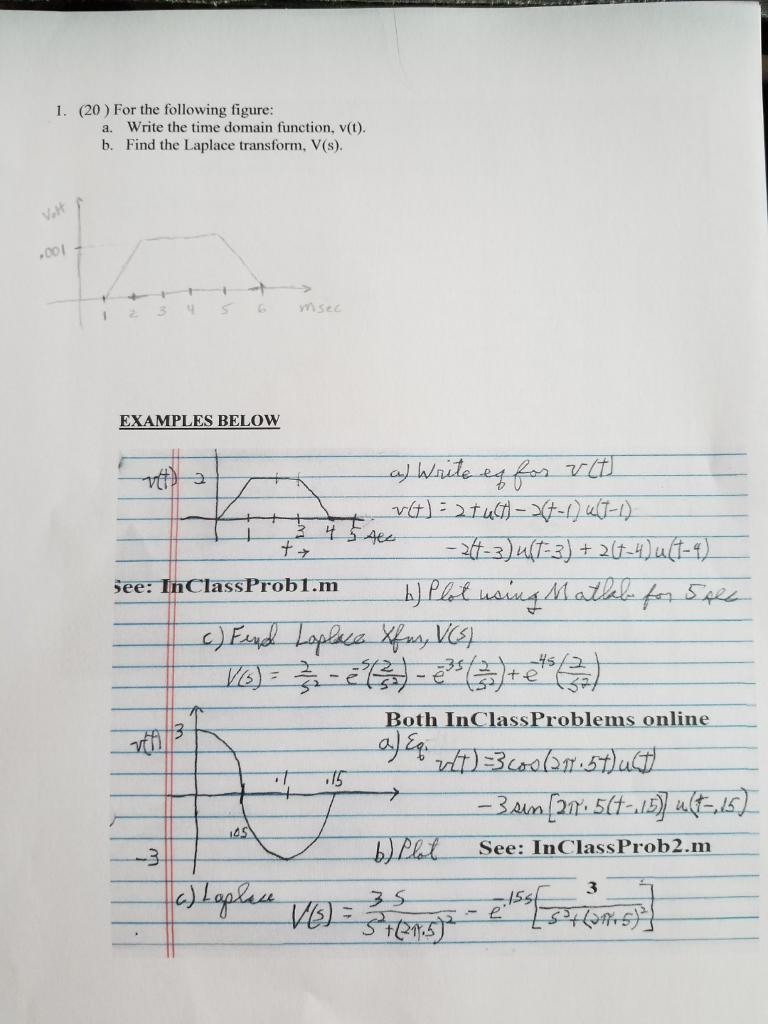 1. (20 ) For the following figure:
a. Write the time domain function, v(t).
b. Find the Laplace transform, V(s).
Volt
.001
1 2 3 4 5 6 msec
EXAMPLES BELOW
v(t) 2
1 3 4 5 sec
t →
a) Write eq for v(t)
v(t) = 2tu(t) - 2(t-1)u(t-1)
- 2(t-3)u(t-3) + 2(t-4)u(t-4)
See: InClassProb1.m
b) Plot using Matlab for 5 sec
c) Find Laplace Xfm, V(s)
V(s) = 2/s² - e^-s(2/s²) - e^-3s(2/s²) + e^-4s(2/s²)
Both InClassProblems online
v(t) 3
.05 .1 .15
-3
a) Eq.
v(t) = 3cos(2π·5t)u(t)
- 3 sin[2π·5(t-.15)] u(t-.15)
b) Plot See: InClassProb2.m
c) Laplace
V(s) = 3s/(s²+(2π·5)²) - e^-.15s[3/(s²+(2π·5)²)]